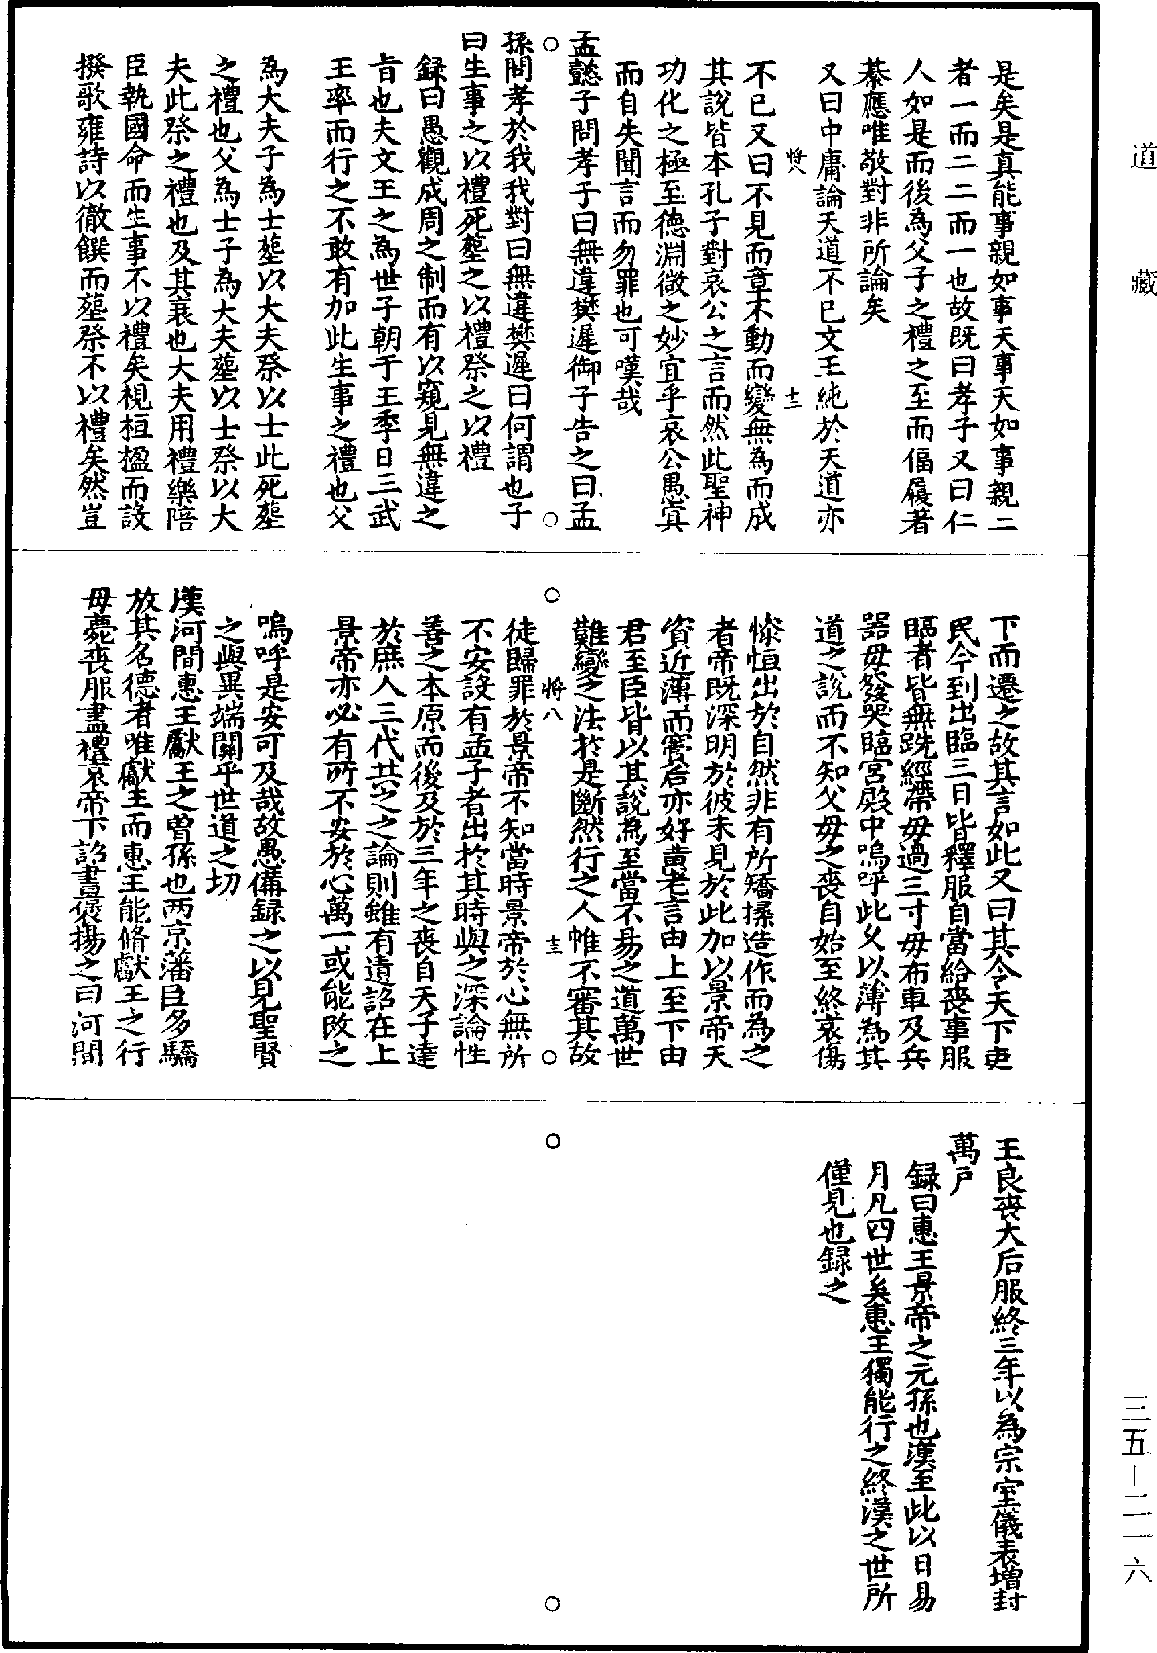 道藏
是矣是真能事親如事天事天如事親二
者一而二二而一也故既曰孝子又曰仁
人如是而後為父子之禮之至而偪屨著
綦應唯敬對非所論矣
又曰中庸論天道不已文王純於天道亦
將八
十二
不已又曰不見而章不動而變無為而成
其說皆本孔子對哀公之言而然此聖神
功化之極至德淵微之妙宜乎哀公愚冥
而自失聞言而勿罪也可嘆哉
孟懿子問孝子曰無違樊遲御子告之曰孟
孫問孝於我我對曰無違樊遲曰何謂也子
曰生事之以禮死塟之以禮祭之以禮
録曰愚觀成周之制而有以窺見無違之
旨也夫文王之為世子朝于王季日三武
王率而行之不敢有加此生事之禮也父
為大夫子為士塟以大夫祭以士此死塟
之禮也父為士子為大夫塟以士祭以大
夫此祭之禮也及其衰也大夫用禮樂陪
臣執國命而生事不以禮矣視桓楹而設
撥歌雍詩以徹饌而塟祭不以禮矣然豈
下而遷之故其言如此又曰其令天下吏
民令到出臨三日皆釋服自當給喪事服
臨者皆無跣絰帶毋過三寸毋布車及兵
器毋發哭臨宮殿中嗚呼此乆以薄為其
道之說而不知父母之喪自始至終哀傷
慘怛出於自然非有所矯揉造作而為之
者帝既深明於彼未見於此加以景帝天
資近薄而竇后亦好黄老言由上至下由
君至臣皆以其說為至當不易之道萬世
難變之法於是斷然行之人惟不審其故
將八
十三
徒歸罪於景帝不知當時景帝於心無所
不安設有孟子者出於其時與之深論性
善之本原而後及於三年之喪自天子達
於庶人三代共之之論則雖有遺詔在上
景帝亦必有所不安於心萬一或能改之
嗚呼是安可及哉故愚備録之以見聖賢
之與異端關乎世道之切
漢河間惠王獻王之曽孫也西京藩臣多驕
放其名德者唯獻王而惠王能脩獻王之行
母薨喪服盡禮哀帝下詔書褒揚之曰河間
王良喪大后服終三年以為宗室儀表增封
萬戶
録曰惠王景帝之元孫也漢至此以日易
月凡四世矣惠王獨能行之終漢之世所
僅見也録之
三五—二一六